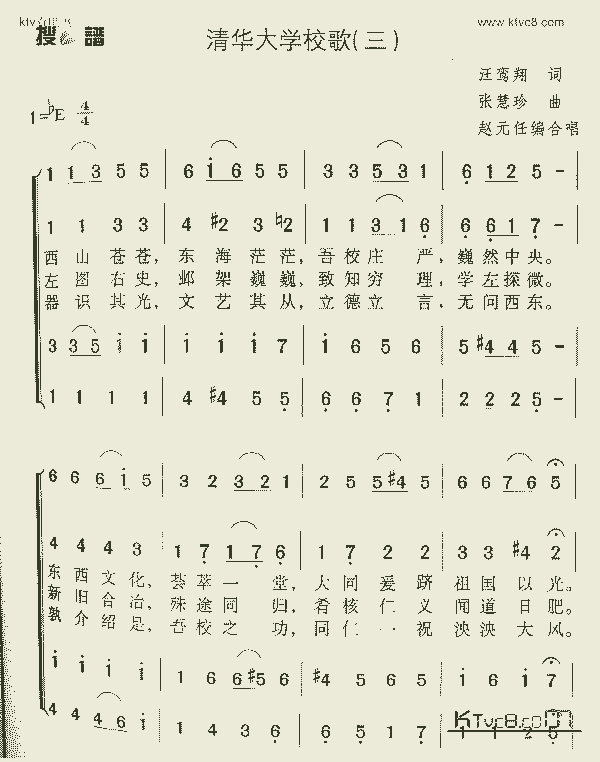 ktv8.com
www.ktvc8.com
搜 谱
清华大学校歌(三)
汪鸾翔 词
张慧珍 曲
赵元任编合唱
1=♭E 4/4
1 1 3 5 5 | 6 i 6 5 5 | 3 3 5 3 1 | 6 1 2 5 -
1 1 3 3 | 4 #2 3 ♮2 | 1 1 3 1 6 | 6 6 1 7 -
西山苍苍，东海茫茫，吾校庄严，巍然中央。
左图右史，邺架巍巍，致知穷理，学左探微。
器识其光，文艺其从，立德立言，无问西东。
3 3 5 i i | i i i 7 | i 6 5 6 | 5 #4 4 5 -
1 1 1 1 | 4 #4 5 5 | 6 6 7 1 | 2 2 2 5 -
6 6 6 i 5 | 3 2 3 2 1 | 2 5 5 #4 5 | 6 6 7 6 5
4 4 4 3 | 1 7 1 7 6 | 2 2 2 2 | 3 3 #4 2
东西文化，荟萃一堂，大同爱跻祖国以光。
新旧合冶，殊途同归，肴核仁义闻道日肥。
孰介绍是，吾校之功，同仁一祝泱泱大风。
i i i i | 1 6 6 #5 6 | #5 5 5 5 | i 6 i 7
4 4 4 6 i | 1 4 3 6 | 6 5 1 7 | 1 1 2 5
KTvc8.com